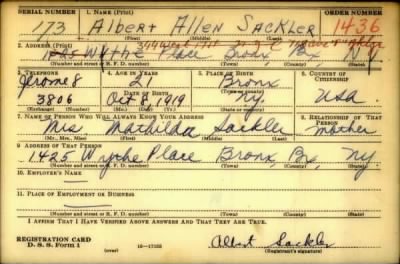 SERIAL NUMBER 1. NAME (Print) ORDER NUMBER
173 Albert Allen Sackler 1436
(First) (Middle) (Last)
2. ADDRESS (Print)
1425 Wythe Place Bronx, Bx N.Y.
(Number and street or R. F. D. number) (Town) (County) (State)
3. TELEPHONE 4. AGE IN YEARS 5. PLACE OF BIRTH 6. COUNTRY OF CITIZENSHIP
Jerome 8 21 Bronx
DATE OF BIRTH
3806 Oct 8, 1919 N.Y. USA
(Exchange) (Number) (Mo.) (Day) (Yr.) (State or country)
7. NAME OF PERSON WHO WILL ALWAYS KNOW YOUR ADDRESS 8. RELATIONSHIP OF THAT PERSON
Mrs. Mathilda Sackler Mother
(Mr., Mrs., Miss) (First) (Middle) (Last)
9. ADDRESS OF THAT PERSON
1425 Wythe Place Bronx, Bx, N.Y.
(Number and street or R. F. D. number) (Town) (County) (State)
10. EMPLOYER'S NAME
—
11. PLACE OF EMPLOYMENT OR BUSINESS
—
(Number and street or R. F. D. number) (Town) (County) (State)
I AFFIRM THAT I HAVE VERIFIED ABOVE ANSWERS AND THAT THEY ARE TRUE.
REGISTRATION CARD
D. S. S. Form 1 16—17105 Albert Sackler
(Registrant's signature)